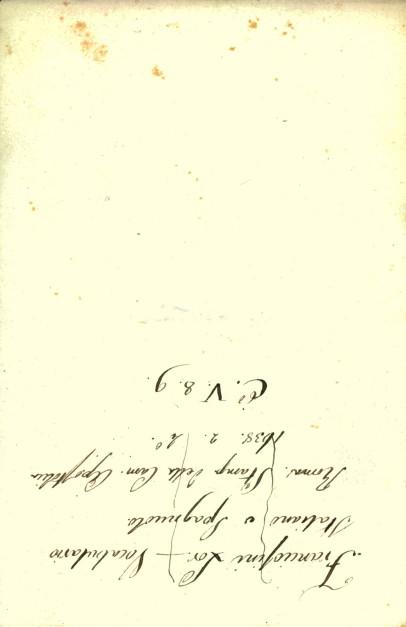 Franciosini Lor. — Vocabulario
Italiano e Spagnuolo
Roma. Stamp. della Cam. Apostolica
1638. 2.
C. V. 8. 9.